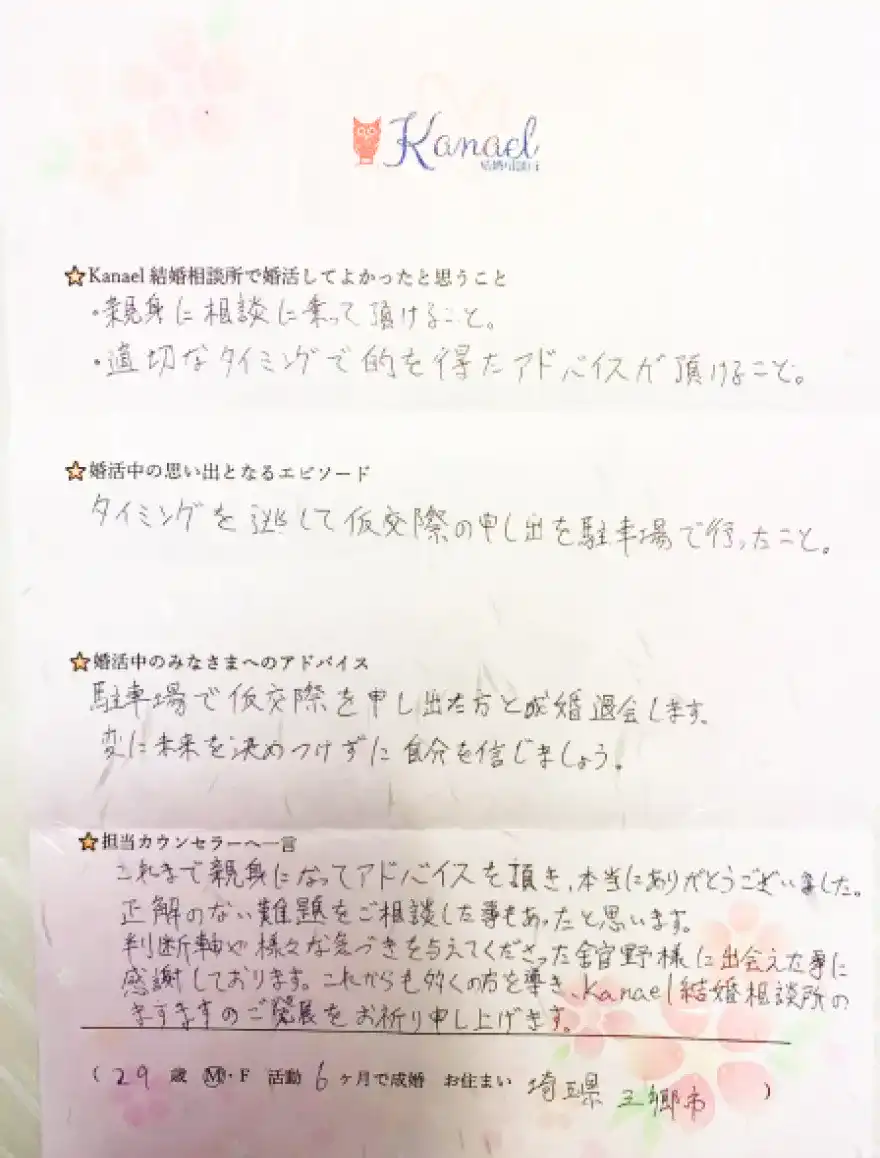 Kanael
結婚相談所
Kanael 結婚相談所で婚活してよかったと思うこと
・親身に相談に乗って頂けること。
・適切なタイミングで的を得たアドバイスが頂けること。
婚活中の思い出となるエピソード
タイミングを逃して仮交際の申し出を駐車場で行ったこと。
婚活中のみなさまへのアドバイス
駐車場で仮交際を申し出た方と成婚退会します。
変に未来を決めつけずに自分を信じましょう。
担当カウンセラーへ一言
これまで親身になってアドバイスを頂き、本当にありがとうございました。
正解のない難題をご相談した事もあったと思います。
判断軸や様々な気づきを与えてくださった舘野様に出会えた事に
感謝しております。これからも多くの方を導き、Kanael結婚相談所の
ますますのご発展をお祈り申し上げます。
( 29 歳 M・F 活動 6 ヶ月で成婚 お住まい 埼玉県 三郷市 )